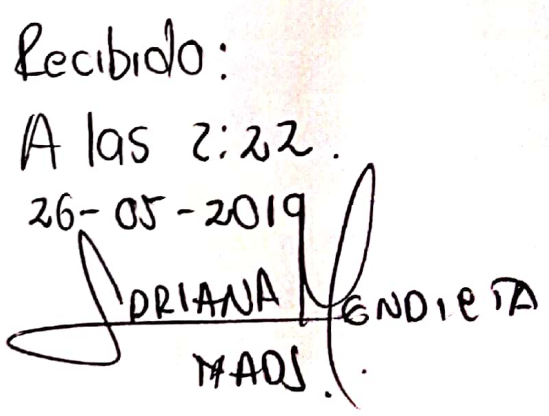 Recibido:
A las 2:22.
26-05-2019
ADRIANA MENDIETA
MADS.